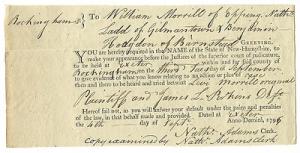 Rockingham ss
To William Morrill of Epping, Nathl
Ladd of Gilmantown & Benjamin
Hodgdon of Barnstead
GREETING.
YOU are hereby required in the NAME of the State of New-Hampshire, to
make your appearance before the Justices of the
to be holden at Exeter within said county of
Rockingham on the third Tuesday of September
to give evidence of what you know relating to an action or plea
then and there to be heard and tried between Levi Morrill original
Plaintiff and James L Perkins Deft
Hereof fail not, as you will answer your default under the pains and penalties
of the law, in that behalf made and provided. Dated at Exeter
the 6th day of Sept Anno Domini, 1796
Nathl Adams Clerk
Copy examined by Nathl Adams Clerk